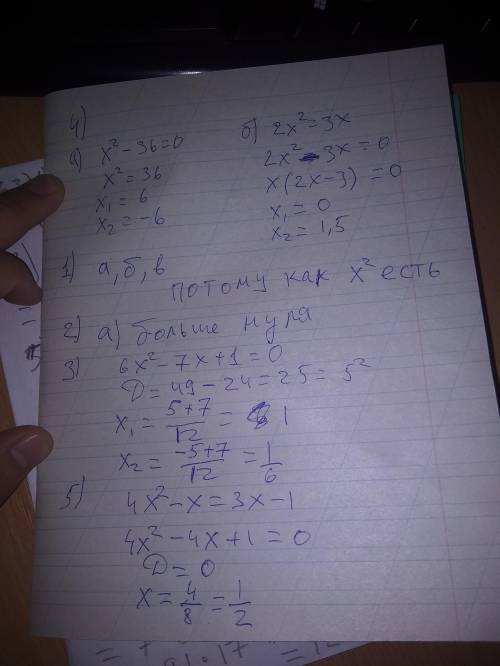 4)
а) x² - 36 = 0
x² = 36
x₁ = 6
x₂ = -6
б) 2x² = 3x
2x² - 3x = 0
x(2x - 3) = 0
x₁ = 0
x₂ = 1,5
1) а, б, в
потому как x² есть
2) а) больше нуля
3) 6x² - 7x + 1 = 0
D = 49 - 24 = 25 = 5²
x₁ = (5+7)/12 = 1
x₂ = (-5+7)/12 = 1/6
5) 4x² - x = 3x - 1
4x² - 4x + 1 = 0
D = 0
x = 4/8 = 1/2